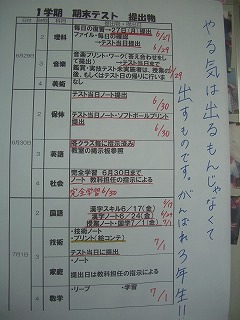 1学期　期末テスト　提出物
時間　科目
6月29日
2　理科　毎日の復習→27日(月)提出　6/27
ファイル・毎日の確認
→テスト当日提出　6/29
3　音楽　音楽プリント・ワーク(答え合わせをして提出)　→テスト当日まで
鑑賞・実技テスト未実施者は、授業の後、もしくはテスト日の帰りに行います　6/29
4　美術　なし
6月30日
2　保体　テスト当日ノート提出　6/30
テスト当日ノート・ソフトボールプリント提出　6/30
3　英語　各クラス毎に指示済み
教室の掲示板参照
4　社会　完全学習　6月30日まで
ノート　教科担任の指示による
完全学習 6/30
7月1日
2　国語　漢字スキル6/17(金)　6/17
漢字ノート6/24(金)　6/24
授業ノート・国学7/1(金)　7/1
技術　・技術ノート
・プリント(絵コンテ)
テスト当日に提出　7/1
3　家庭　・ノート
提出日は教科担任の指示による
4　数学　・リープ　・学習　7/1
やる気は出るもんじゃなくて
出すものです。がんばれ3年生!!